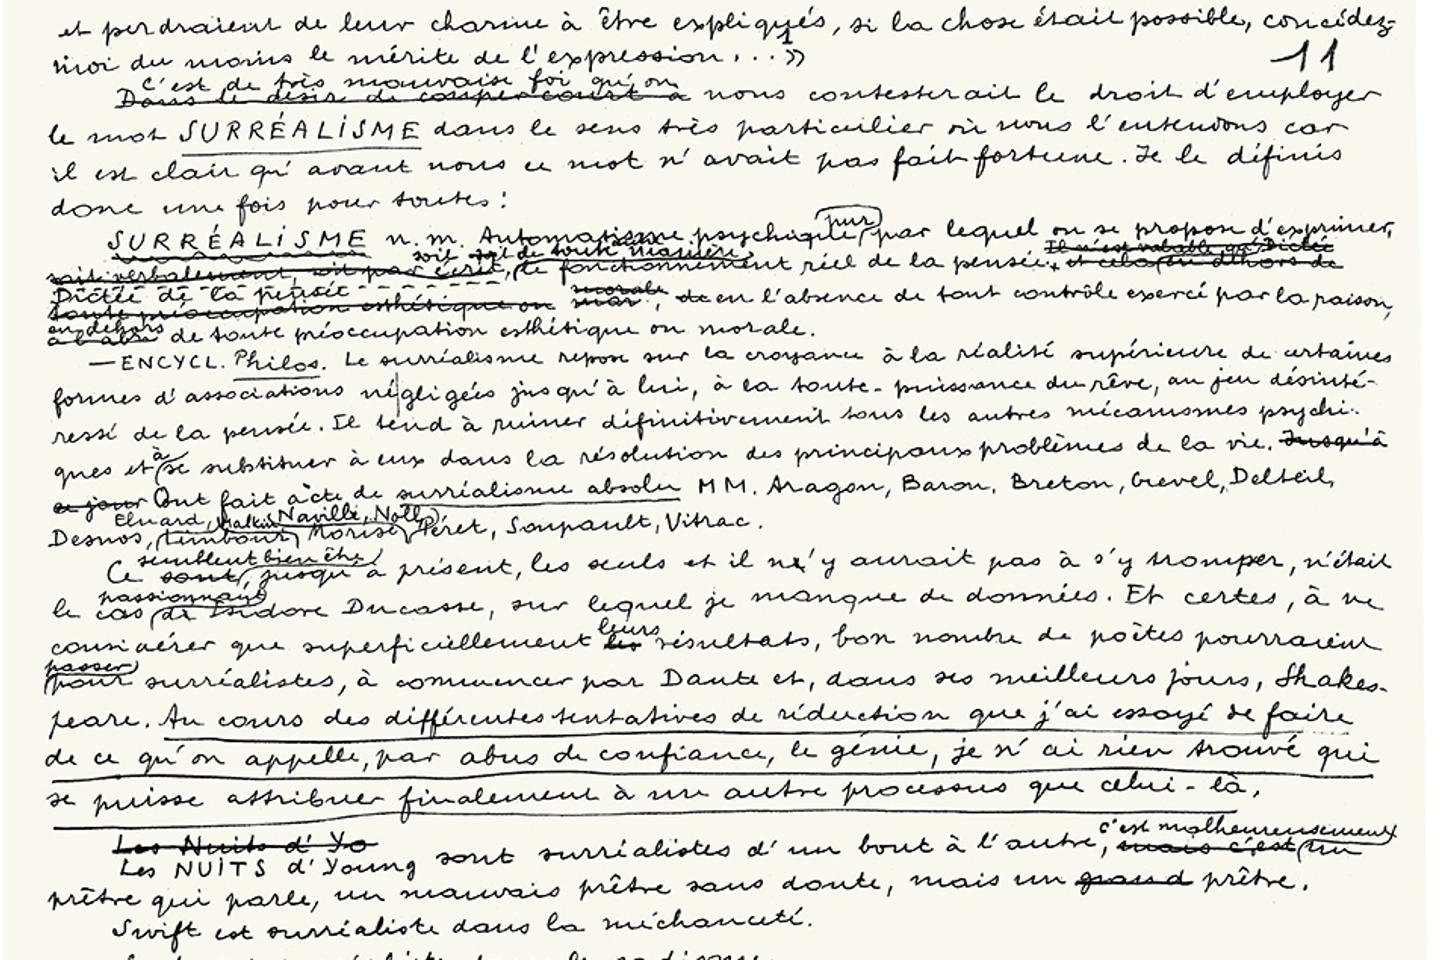 et perdraient de leur charme à être expliqués, si la chose était possible, concédez-
moi du moins le mérite de l'expression...»
11
C'est de très mauvaise foi qu'on
Dans le désir de couper court à nous contesterait le droit d'employer
le mot SURRÉALISME dans le sens très particulier où nous l'entendons car
il est clair qu'avant nous ce mot n'avait pas fait fortune. Je le définis
donc une fois pour toutes:
pur
SURRÉALISME n.m. Automatisme psychique par lequel on se propose d'exprimer,
soit soit de toute manière, Il n'est valable qu'Dictée
soit verbalement, soit par écrit, le fonctionnement réel de la pensée. et cela, en dehors de
Dictée de la pensée morale
toute préoccupation esthétique ou mor, de en l'absence de tout contrôle exercé par la raison,
en dehors
à l'abri de toute préoccupation esthétique ou morale.
— ENCYCL. Philos. Le surréalisme repose sur la croyance à la réalité supérieure de certaines
formes d'associations négligées jusqu'à lui, à la toute-puissance du rêve, au jeu désinté-
ressé de la pensée. Il tend à ruiner définitivement tous les autres mécanismes psychi-
à
ques et se substituer à eux dans la résolution des principaux problèmes de la vie. Jusqu'à
ce jour Ont fait acte de surréalisme absolu MM. Aragon, Baron, Breton, Crevel, Delteil,
Eluard, Malkine Naville, Noll,
Desnos, Limbour, Morise, Péret, Soupault, Vitrac.
semblent bien être
Ce sont, jusqu'à présent, les seuls et il n'y aurait pas à s'y tromper, n'était
passionnant
le cas de Isidore Ducasse, sur lequel je manque de données. Et certes, à ne
leurs
considérer que superficiellement les résultats, bon nombre de poètes pourraient
passer
pour surréalistes, à commencer par Dante et, dans ses meilleurs jours, Shakes-
peare. Au cours des différentes tentatives de réduction que j'ai essayé de faire
de ce qu'on appelle, par abus de confiance, le génie, je n'ai rien trouvé qui
se puisse attribuer finalement à un autre processus que celui-là,
Les Nuits d'Yo
c'est malheureusement
Les NUITS d'Young sont surréalistes d'un bout à l'autre, mais c'est un
prêtre qui parle, un mauvais prêtre sans doute, mais un grand prêtre.
Swift est surréaliste dans la méchanceté.